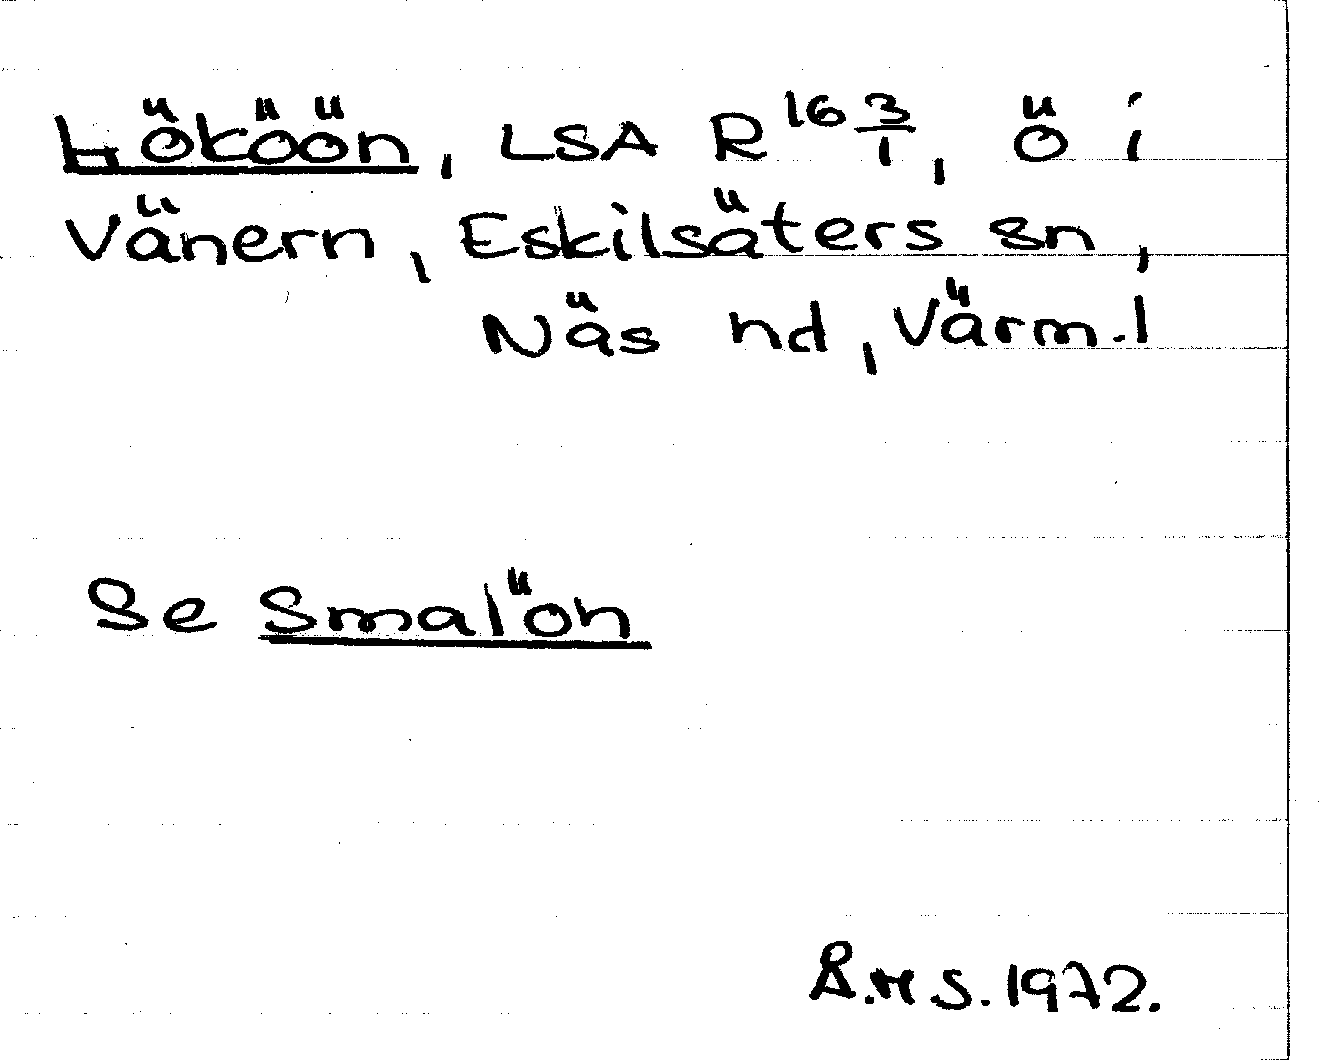 Hököön, LSA R 16 3/1, ö i
Vänern, Eskilsäters sn,
Näs hd, Värm.l
Se Smalön
Å.H S. 1972.